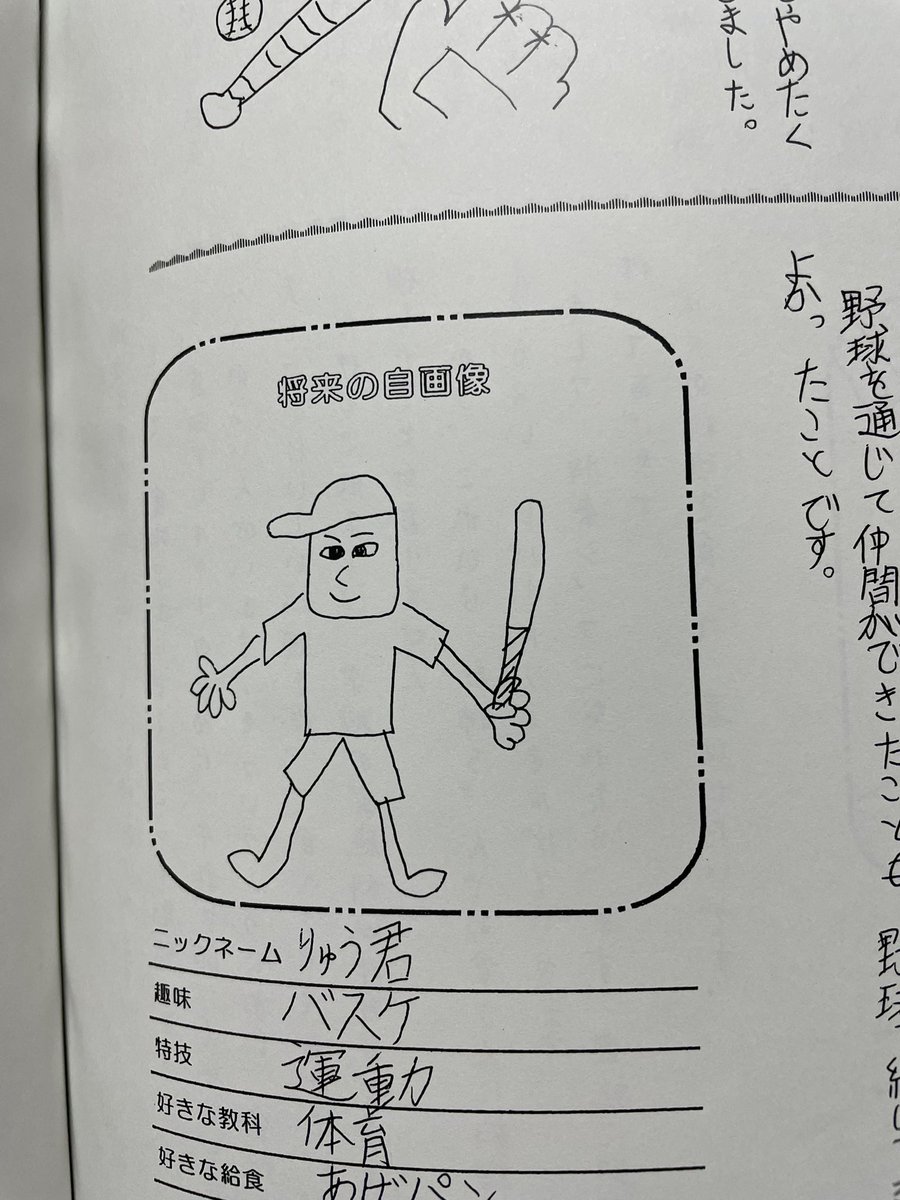 やめたく
ました。
野球を通じて仲間ができたことも
よかったことです。
野球
将来の自画像
ニックネーム りゅう君
趣味 バスケ
特技 運動力
好きな教科 体育
好きな給食 あげパン